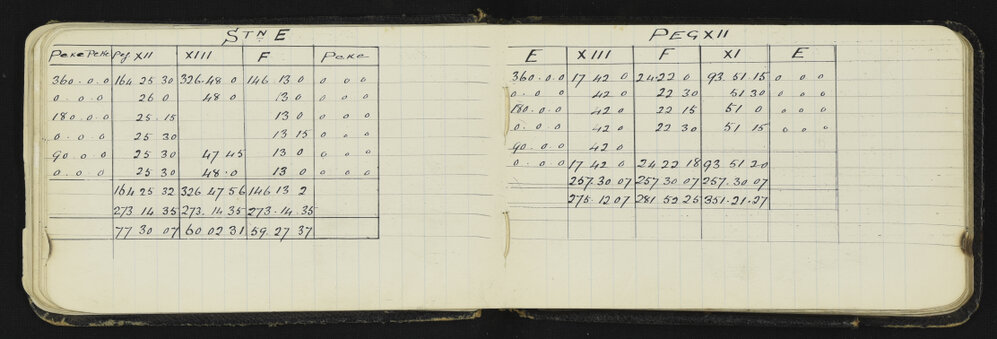 STN E
Peke Peke Peg XII XIII F Peke
360.0.0 164 25 30 326.48.0 146.13 0 0 0 0
0.0.0 26 0 48 0 13 0 0 0 0
180.0.0 25.15 13 0 0 0 0
0.0.0 25 30 13 15 0 0 0
90.0.0 25 30 47 45 13 0 0 0 0
0.0.0 25 30 48.0 13 0 0 0 0
164 25 32 326 47 56 146 13 2
273 14 35 273.14 35 273.14.35
77 30 07 60 02 31 59.27 37
PEG XII
E XIII F XI E
360.0.0 17 42 0 24 22 0 93.51.15 0 0 0
0.0.0 42 0 22 30 51 30 0 0 0
180.0.0 42 0 22 15 51 0 0 0 0
0.0.0 42 0 22 30 51 15 0 0 0
90.0.0 42 0
0.0.0 17 42 0 24 22 18 93.51 20
257.30 07 257 30 07 257.30.07
275.12 07 281 52 25 351.21.27